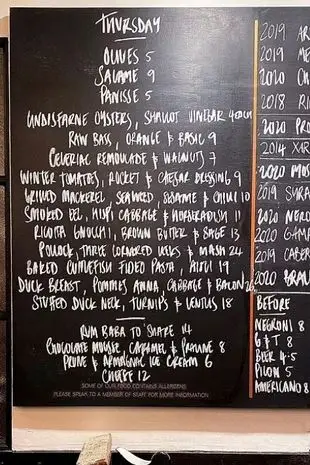 THURSDAY
OLIVES 5
SALAME 9
PANISSE 5
LINDISFARNE OYSTERS, SHALLOT VINEGAR 4 EACH
RAW BASS, ORANGE & BASIL 9
CELERIAC REMOULADE & WALNUTS 7
WINTER TOMATOES, ROCKET & CAESAR DRESSING 9
GRILLED MACKEREL, SEAWEED, SESAME & CHILLI 10
SMOKED EEL, HISPI CABBAGE & HORSERADISH 11
RICOTTA GNOCCHI, BROWN BUTTER & SAGE 13
POLLOCK, THREE CORNERED LEEKS & MASH 24
BAKED CUTTLEFISH FIDEO PASTA, AIOLI 19
DUCK BREAST, POMMES ANNA, CABBAGE & BACON
STUFFED DUCK NECK, TURNIPS & LENTILS 18
RUM BABA TO SHARE 14
CHOCOLATE MOUSSE, CARAMEL & PRALINE 8
PRUNE & ARMAGNAC ICE CREAM 6
CHEESE 12
SOME OF OUR FOOD CONTAINS ALLERGENS
PLEASE SPEAK TO A MEMBER OF STAFF FOR MORE INFORMATION
2019
2019
2020
2018
2020
2014
2020
2019
2020
2020
2019
2020
BEFORE
NEGRONI 8
G & T 8
BEER 4.5
PICON 5
AMERICANO 8